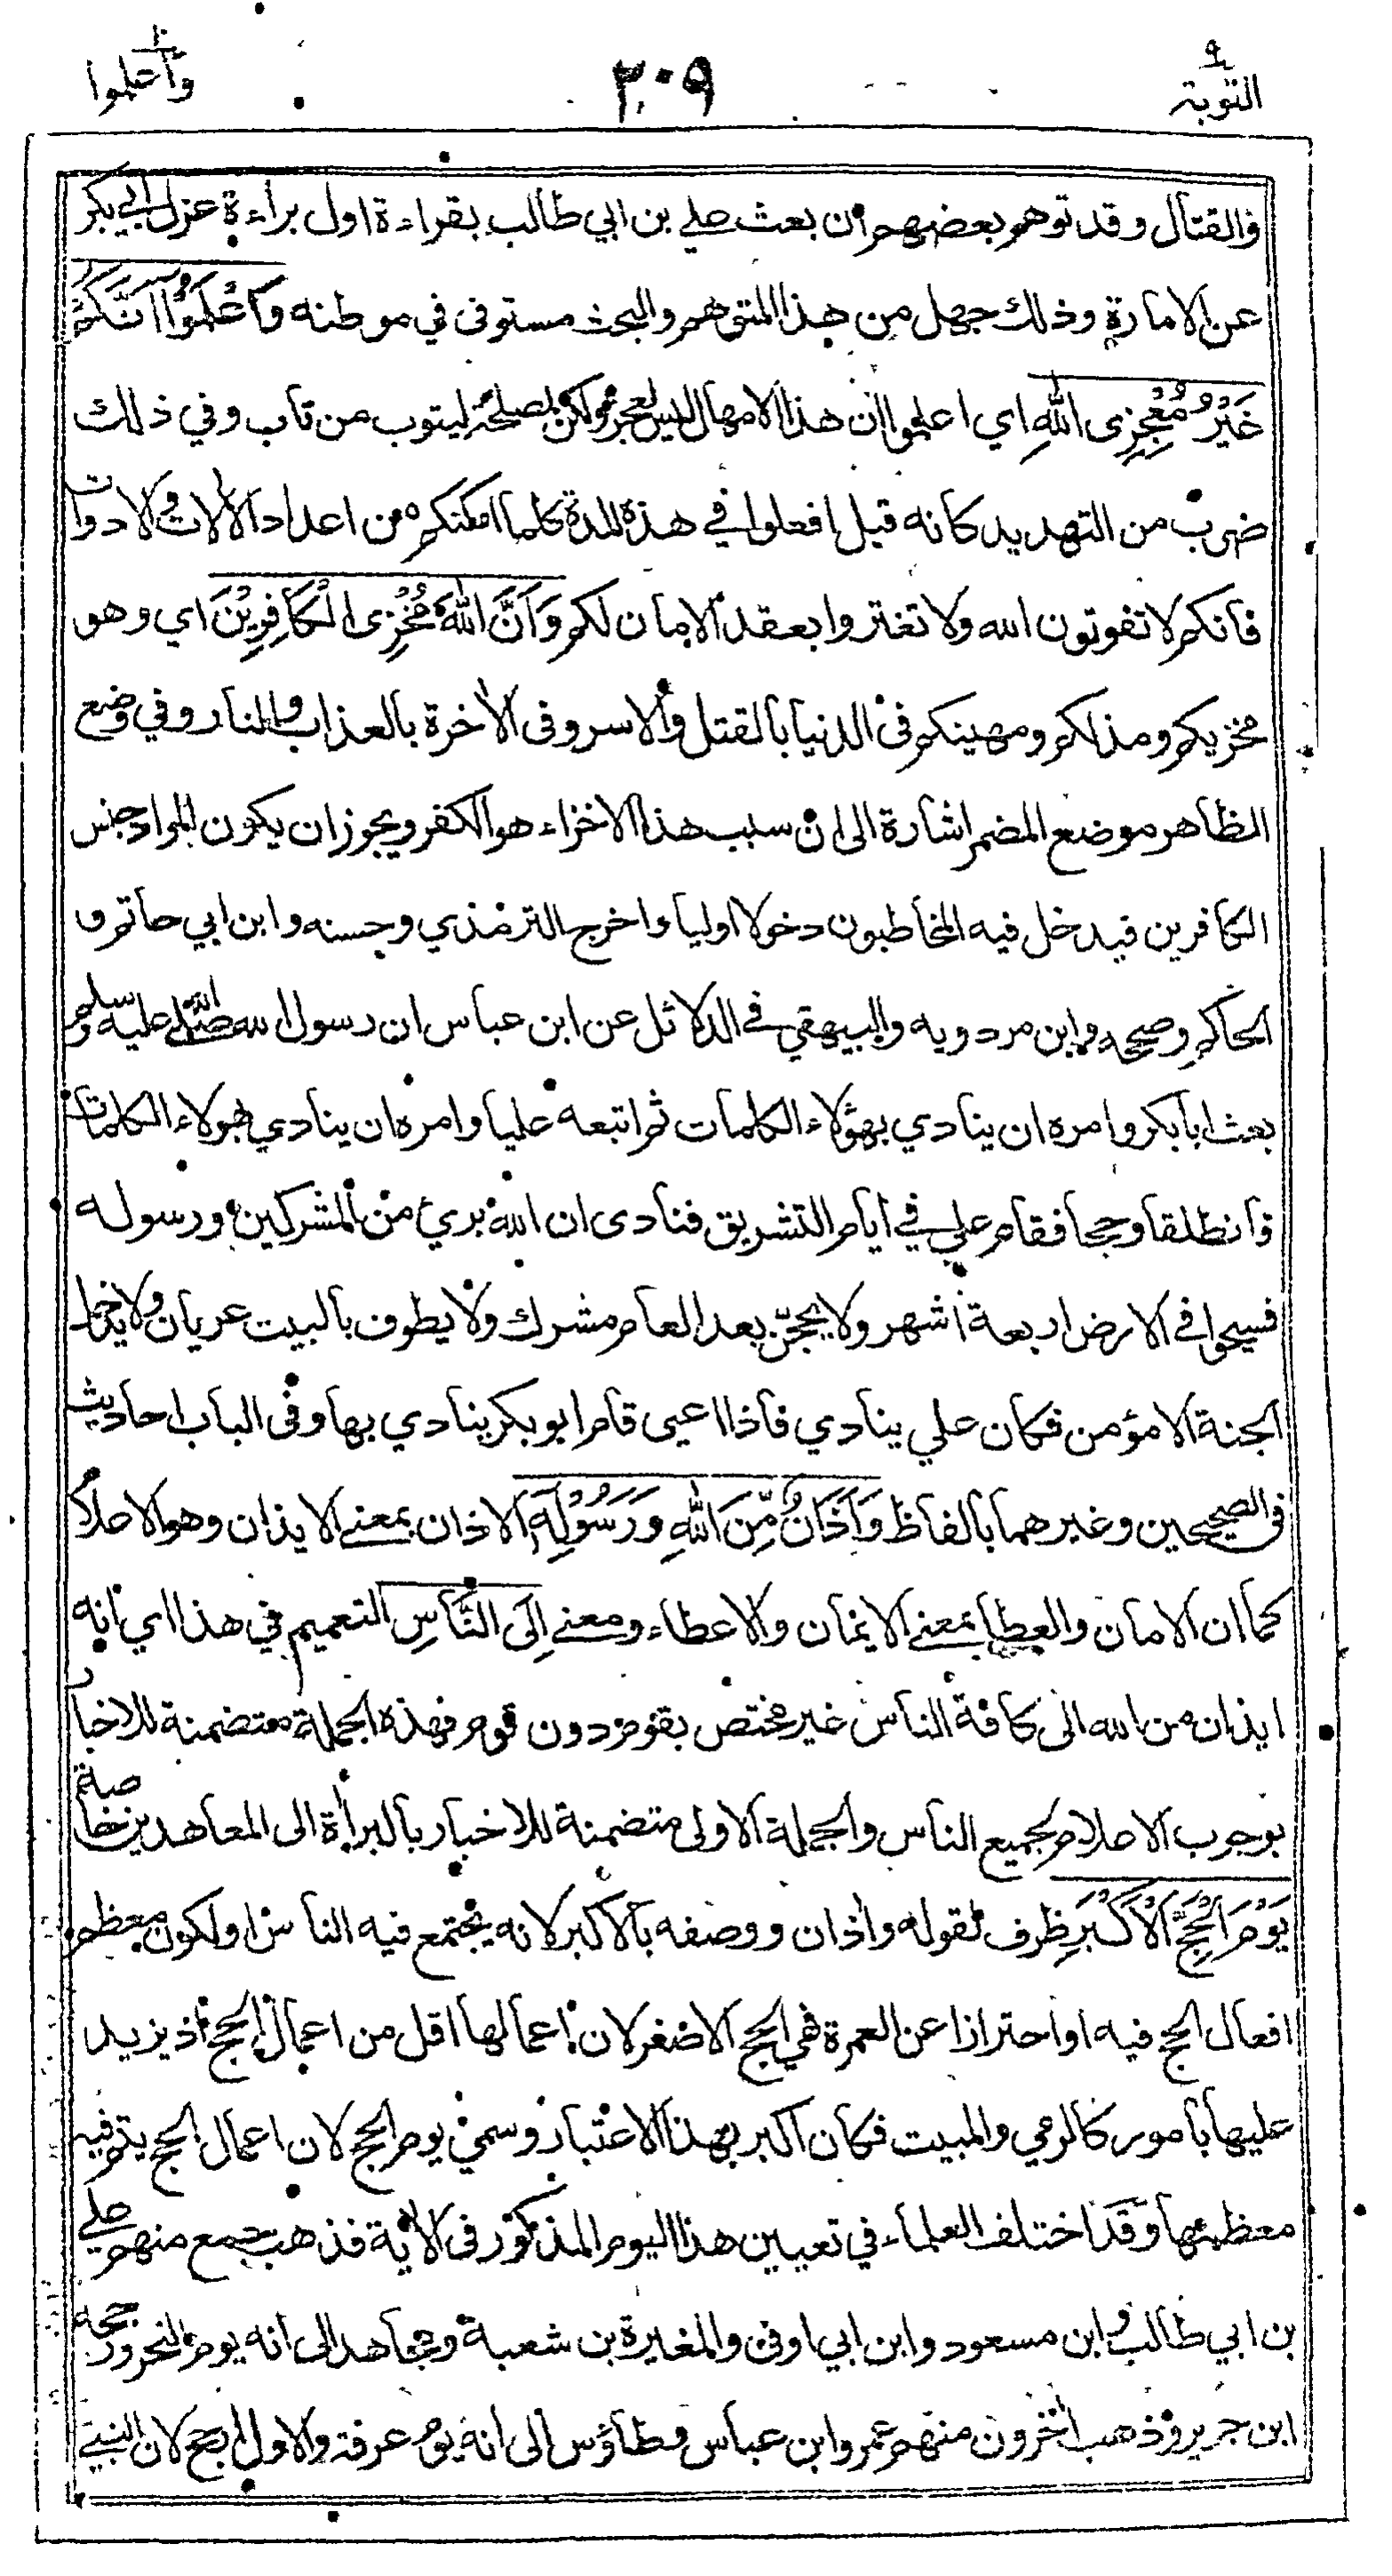 التوبة ٩
٣٠٩
واعلموا ١٠
والقتال وقد توهم بعضهم ان بعث علي بن ابي طالب بقراءة اول براءة عزل ابي بكر
عن الامارة وذلك جهل من هذا المتوهم والبحث مستوفى في موطنه وَاعْلَمُوْا اَنَّكُمْ
غَيْرُ مُعْجِزِى اللّٰهِ اي اعلموا ان هذا الامهال ليس لعجز ولكن لمصلحة ليتوب من تاب وفي ذلك
ضرب من التهديد كانه قيل افعلوا في هذه المدة كلما امكنكم من اعداد الآلات والادوات
فانكم لا تفوتون الله ولا تغتروا بعقد الامان لكم وَاَنَّ اللّٰهَ مُخْزِى الْكَافِرِيْنَ اي وهو
مخزيكم ومذلكم ومهينكم فى الدنيا بالقتل والاسر وفى الآخرة بالعذاب والنار وفي وضع
الظاهر موضع المضمر اشارة الى ان سبب هذا الاخزاء هو الكفر ويجوز ان يكون المراد جنس
الكافرين فيدخل فيه المخاطبون دخولا اوليا واخرج الترمذي وحسنه وابن ابي حاتم و
الحاكم وصححه وابن مردويه والبيهقي في الدلائل عن ابن عباس ان رسول الله صلى الله عليه وسلم
بعث ابا بكر وامره ان ينادي بهؤلاء الكلمات ثم اتبعه عليا وامره ان ينادي بهؤلاء الكلمات
فانطلقا وحجا فقام علي في ايام التشريق فنادى ان الله بريئ من المشركين ورسوله
فسيحوا في الارض اربعة اشهر ولا يحجّن بعد العام مشرك ولا يطوف بالبيت عريان ولا يدخل
الجنة الا مؤمن فكان علي ينادي فاذا اعيى قام ابو بكر ينادي بها وفى الباب احاديث
فى الصحيحين وغيرهما بالفاظ وَاَذَانٌ مِّنَ اللّٰهِ وَرَسُوْلِهٖ الاذان بمعنى الايذان وهو الاعلام
كما ان الامان والعطا بمعنى الايمان والاعطاء ومعنى اِلَى النَّاسِ التعميم في هذا اي انه
ايذان من الله الى كافة الناس غير مختص بقوم دون قوم فهذه الجملة متضمنة للاخبار
بوجوب الاعلام لجميع الناس والجملة الاولى متضمنة للاخبار بالبراءة الى المعاهدين خاصة
يَوْمَ الْحَجِّ الْاَكْبَرِ ظرف لقوله واذان ووصفه بالاكبر لانه يجتمع فيه الناس او لكون معظم
افعال الحج فيه او احترازا عن العمرة فهي الحج الاصغر لان اعمالها اقل من اعمال الحج اذ يزيد
عليها بامور كالرمي والمبيت فكان اكبر بهذا الاعتبار وسمي يوم الحج لان اعمال الحج يتم فيه
معظمها وقد اختلف العلماء في تعيين هذا اليوم المذكور فى الآية فذهب جمع منهم علي
بن ابي طالب وابن مسعود وابن ابي اوفى والمغيرة بن شعبة ومجاهد الى انه يوم النحر ورجحه
ابن جرير وذهب آخرون منهم عمر وابن عباس وطاؤس الى انه يوم عرفة والاول ارجح لان النبي